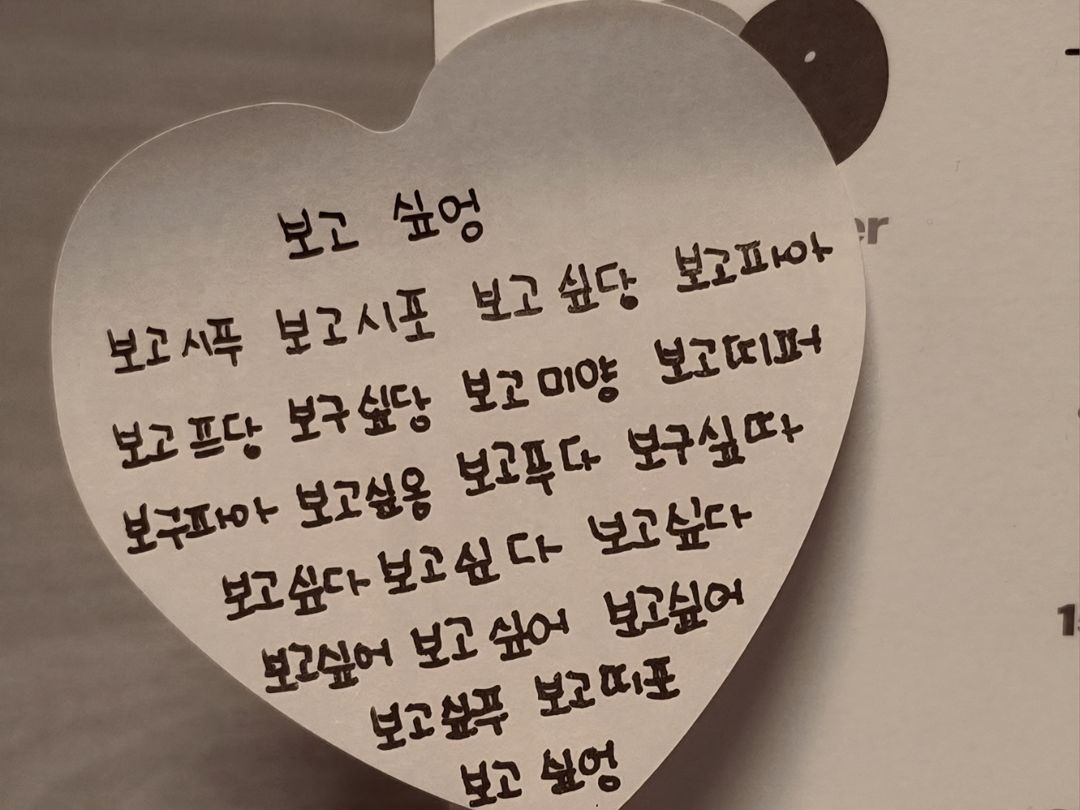 보고 싶엉
보고시푸 보고시포 보고싶당 보고파아
보고프당 보구싶당 보고미양 보고띠퍼
보구파아 보고싶옹 보고푸다 보구싶따
보고싶다 보고싶다 보고싶다
보고싶어 보고싶어 보고싶어
보고싶푸 보고띠포
보고 싶엉
er